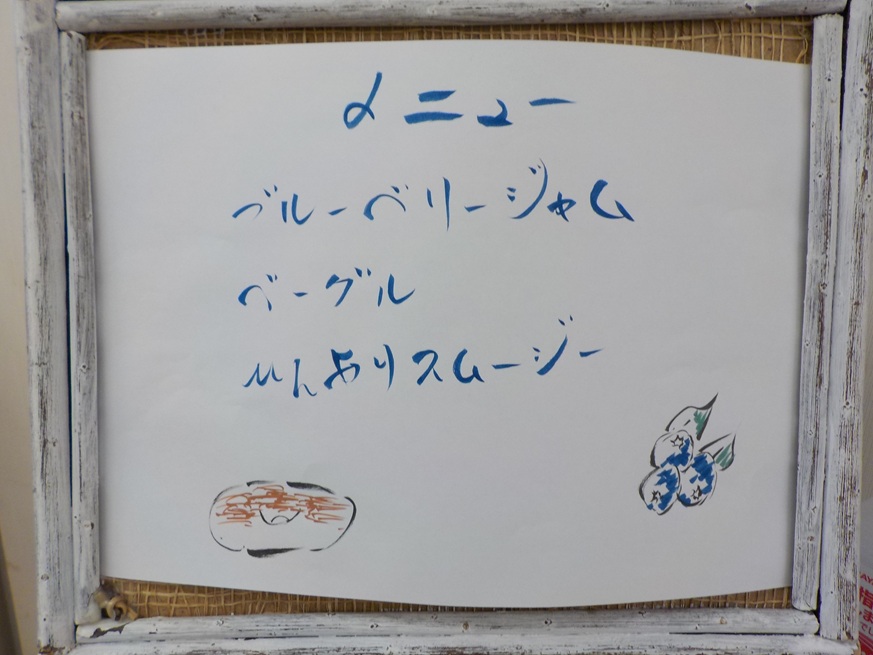 メニュー
ブルーベリージャム
ベーグル
スムージー